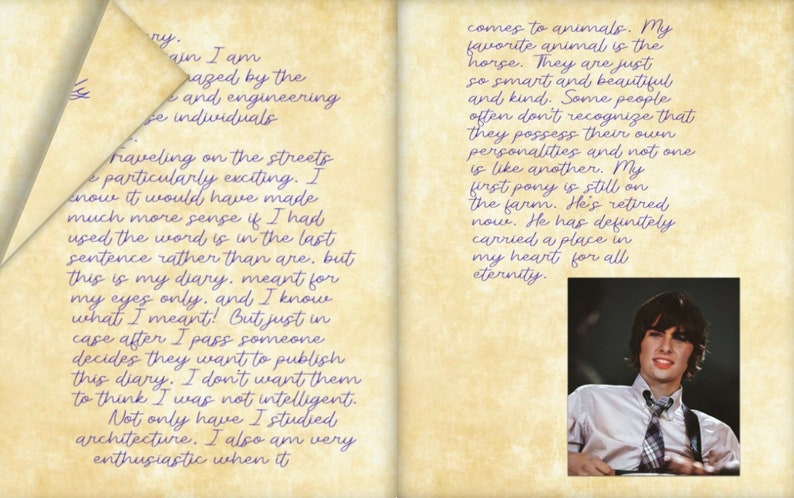 ry.
ain I am
nazed by the
e and engineering
se individuals
e.
Traveling on the streets
e particularly exciting. I
know it would have made
much more sense if I had
used the word is in the last
sentence rather than are, but
this is my diary, meant for
my eyes only, and I know
what I meant! But just in
case after I pass someone
decides they want to publish
this diary, I don't want them
to think I was not intelligent.
Not only have I studied
architecture, I also am very
enthusiastic when it
comes to animals. My
favorite animal is the
horse. They are just
so smart and beautiful
and kind. Some people
often don't recognize that
they possess their own
personalities and not one
is like another. My
first pony is still on
the farm. He's retired
now. He has definitely
carried a place in
my heart for all
eternity.